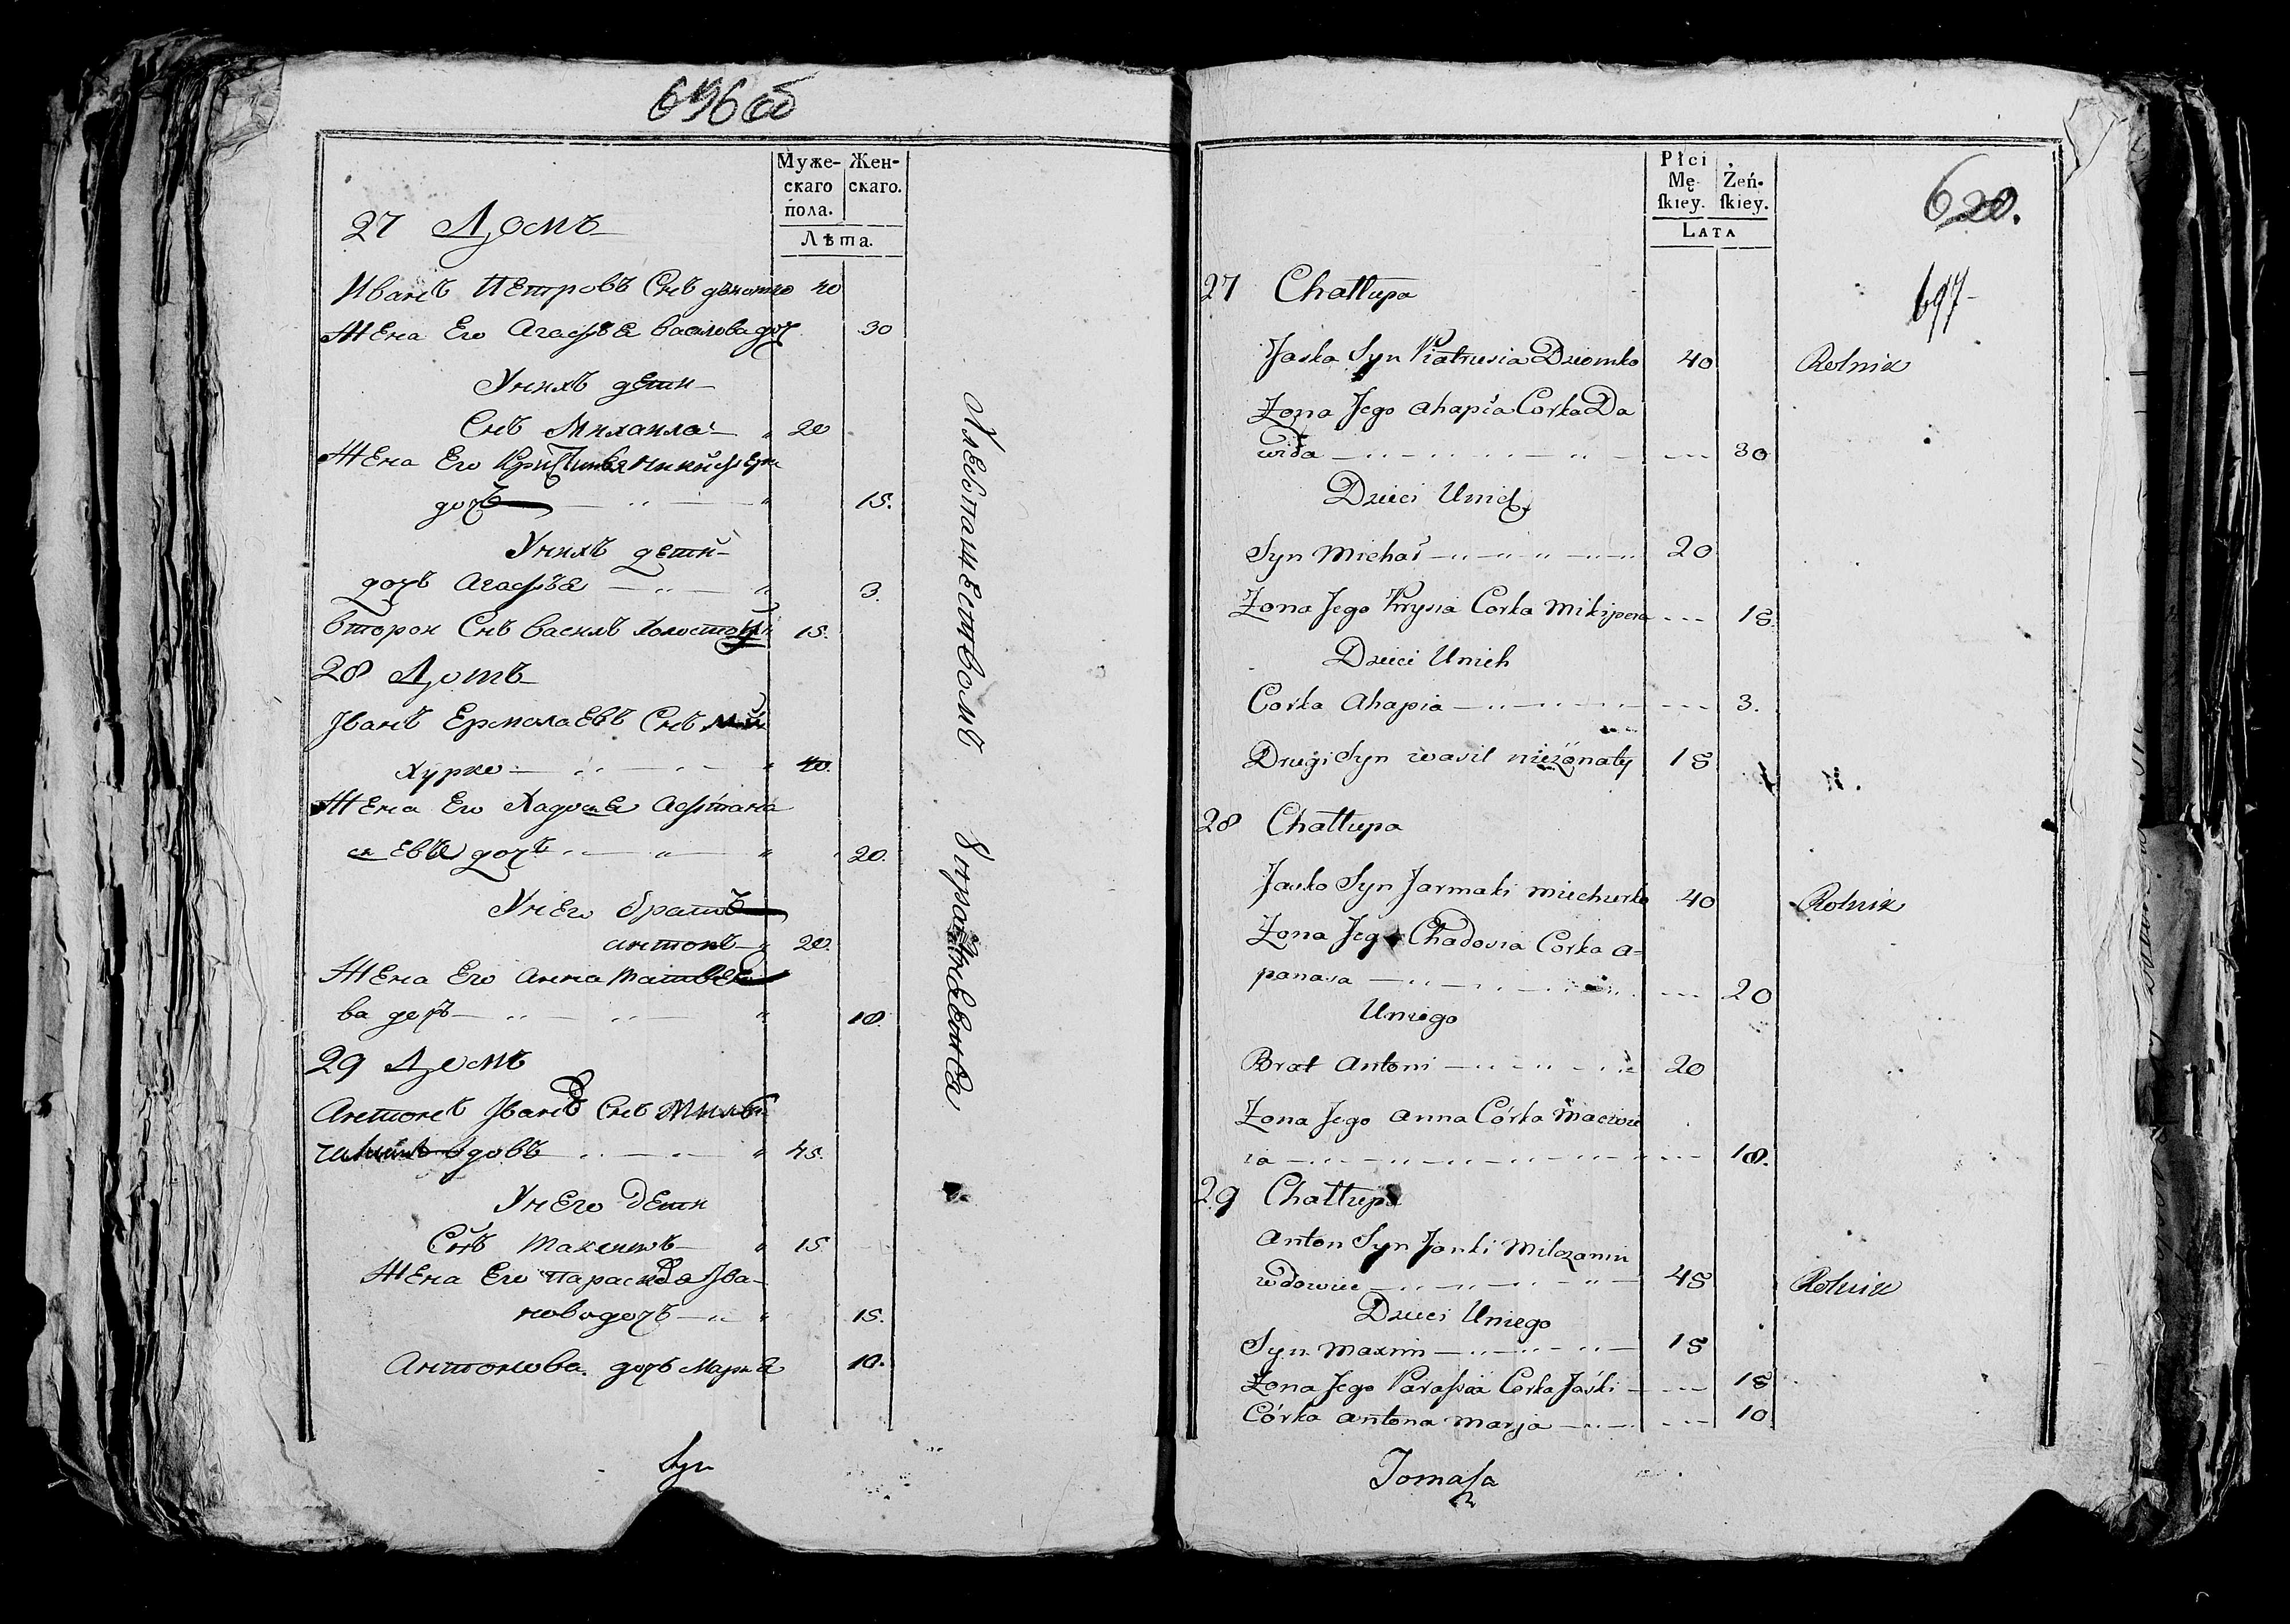 696 об
Муже- Жен-
скаго скаго.
пола.
Лѣта.
27 Домъ
Иванъ Петровъ Снъ 40
Жена Его Агафѣя Василова доч 30
Унихъ дети
Снъ Михаила 20
Жена Его
дочъ 15.
Унихъ дети
дочъ Агафѣя 3.
второи Снъ василъ Холостой 15.
28 Домъ
Јванъ Ермолаевъ Снъ Мѝ
хурко 40.
Жена Его Хадосѧ Афтана
сѧ Евѣ дочъ 20.
Унего братъ
антонъ 20.
Жена Его Анна Матвее
ва дочъ 18.
29 Домъ
Антонъ Јванъ Снъ Милъ
вдовъ 45.
Унего дети
Снъ Максимъ 15
Жена Его параскѣвѧ Јва-
нова дочъ 15.
Антонова дочъ Марѧ 10.
Хлебпашествомъ упражняевся
Syn
Płci
Mę- Żeń-
ſkiey. ſkiey.
LATA
620.
697
27 Chałłupa
Jaśka Syn Piatrusia Dziomko 40 Rolnik
Żona Jego ahapia Corka Da
wida 30
Dzieci Unich
Syn Michaś 20
Żona Jego Krysia Corka Mikipera 15
Dzieci Unich
Corka Ahapia 3.
Drugi Syn wasil nieżonaty 15
28 Chałłupa
Jaśko Syn Jarmaki Miechurko 40 Rolnik
Żona Jego Chadosia Corka a=
panasa 20
Uniego
Brat Antoni 20
Żona Jego Anna Córka Maciwie
ia 18.
29 Chałłupa
Anton Syn Janki Milczanin
wdowiec 45 Rolnik
Dzieci Uniego
Syn Maxim 15
Żona Jego Paraſsia Corka Jaśki 15
Córka antona Marja 10
Tomaſza